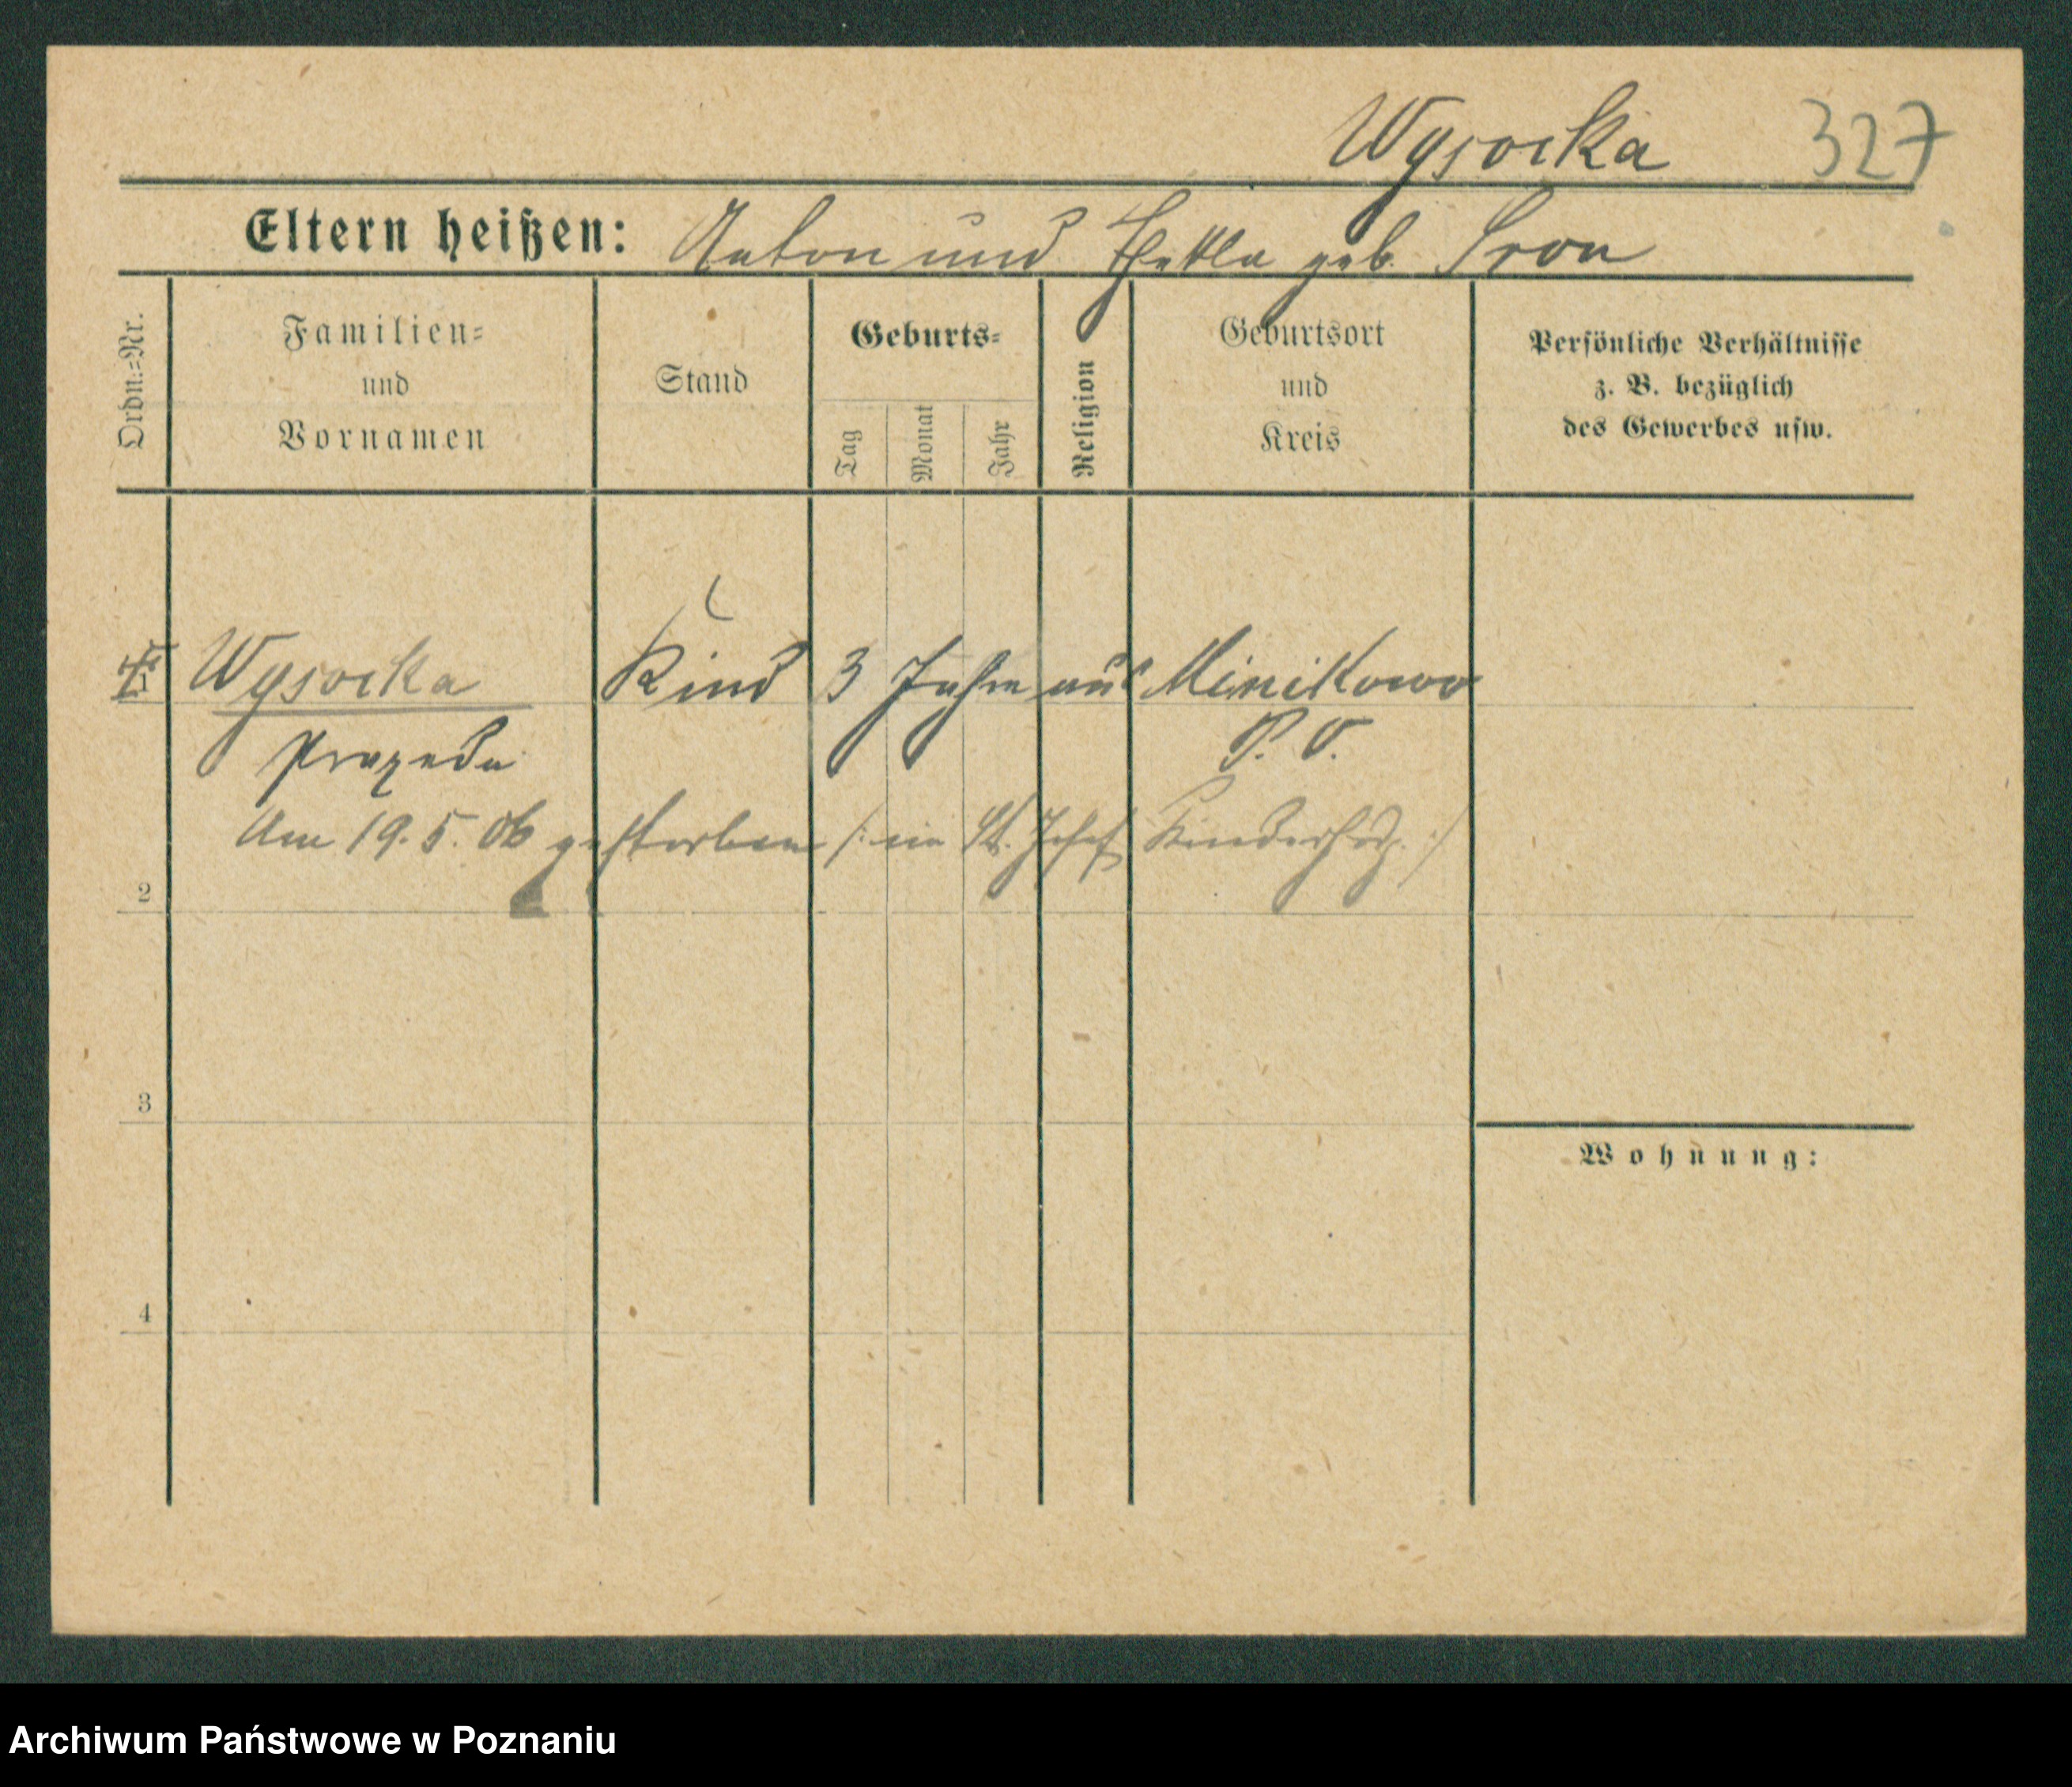 Wysocka 327
Eltern heißen: Anton und Thekla geb. Sron
Ordn.=Nr.
Familien=
und
Vornamen
Stand
Geburts=
Tag
Monat
Jahr
Religion
Geburtsort
und
Kreis
Persönliche Verhältnisse
z. B. bezüglich
des Gewerbes usw.
Wysocka Kind 3 Jahre aus Minikowo
Praxeda P. O.
Am 19.5.06 gestorben /: im St. Josef Kinderhosp. :/
2
3
Wohnung:
4
Archiwum Państwowe w Poznaniu